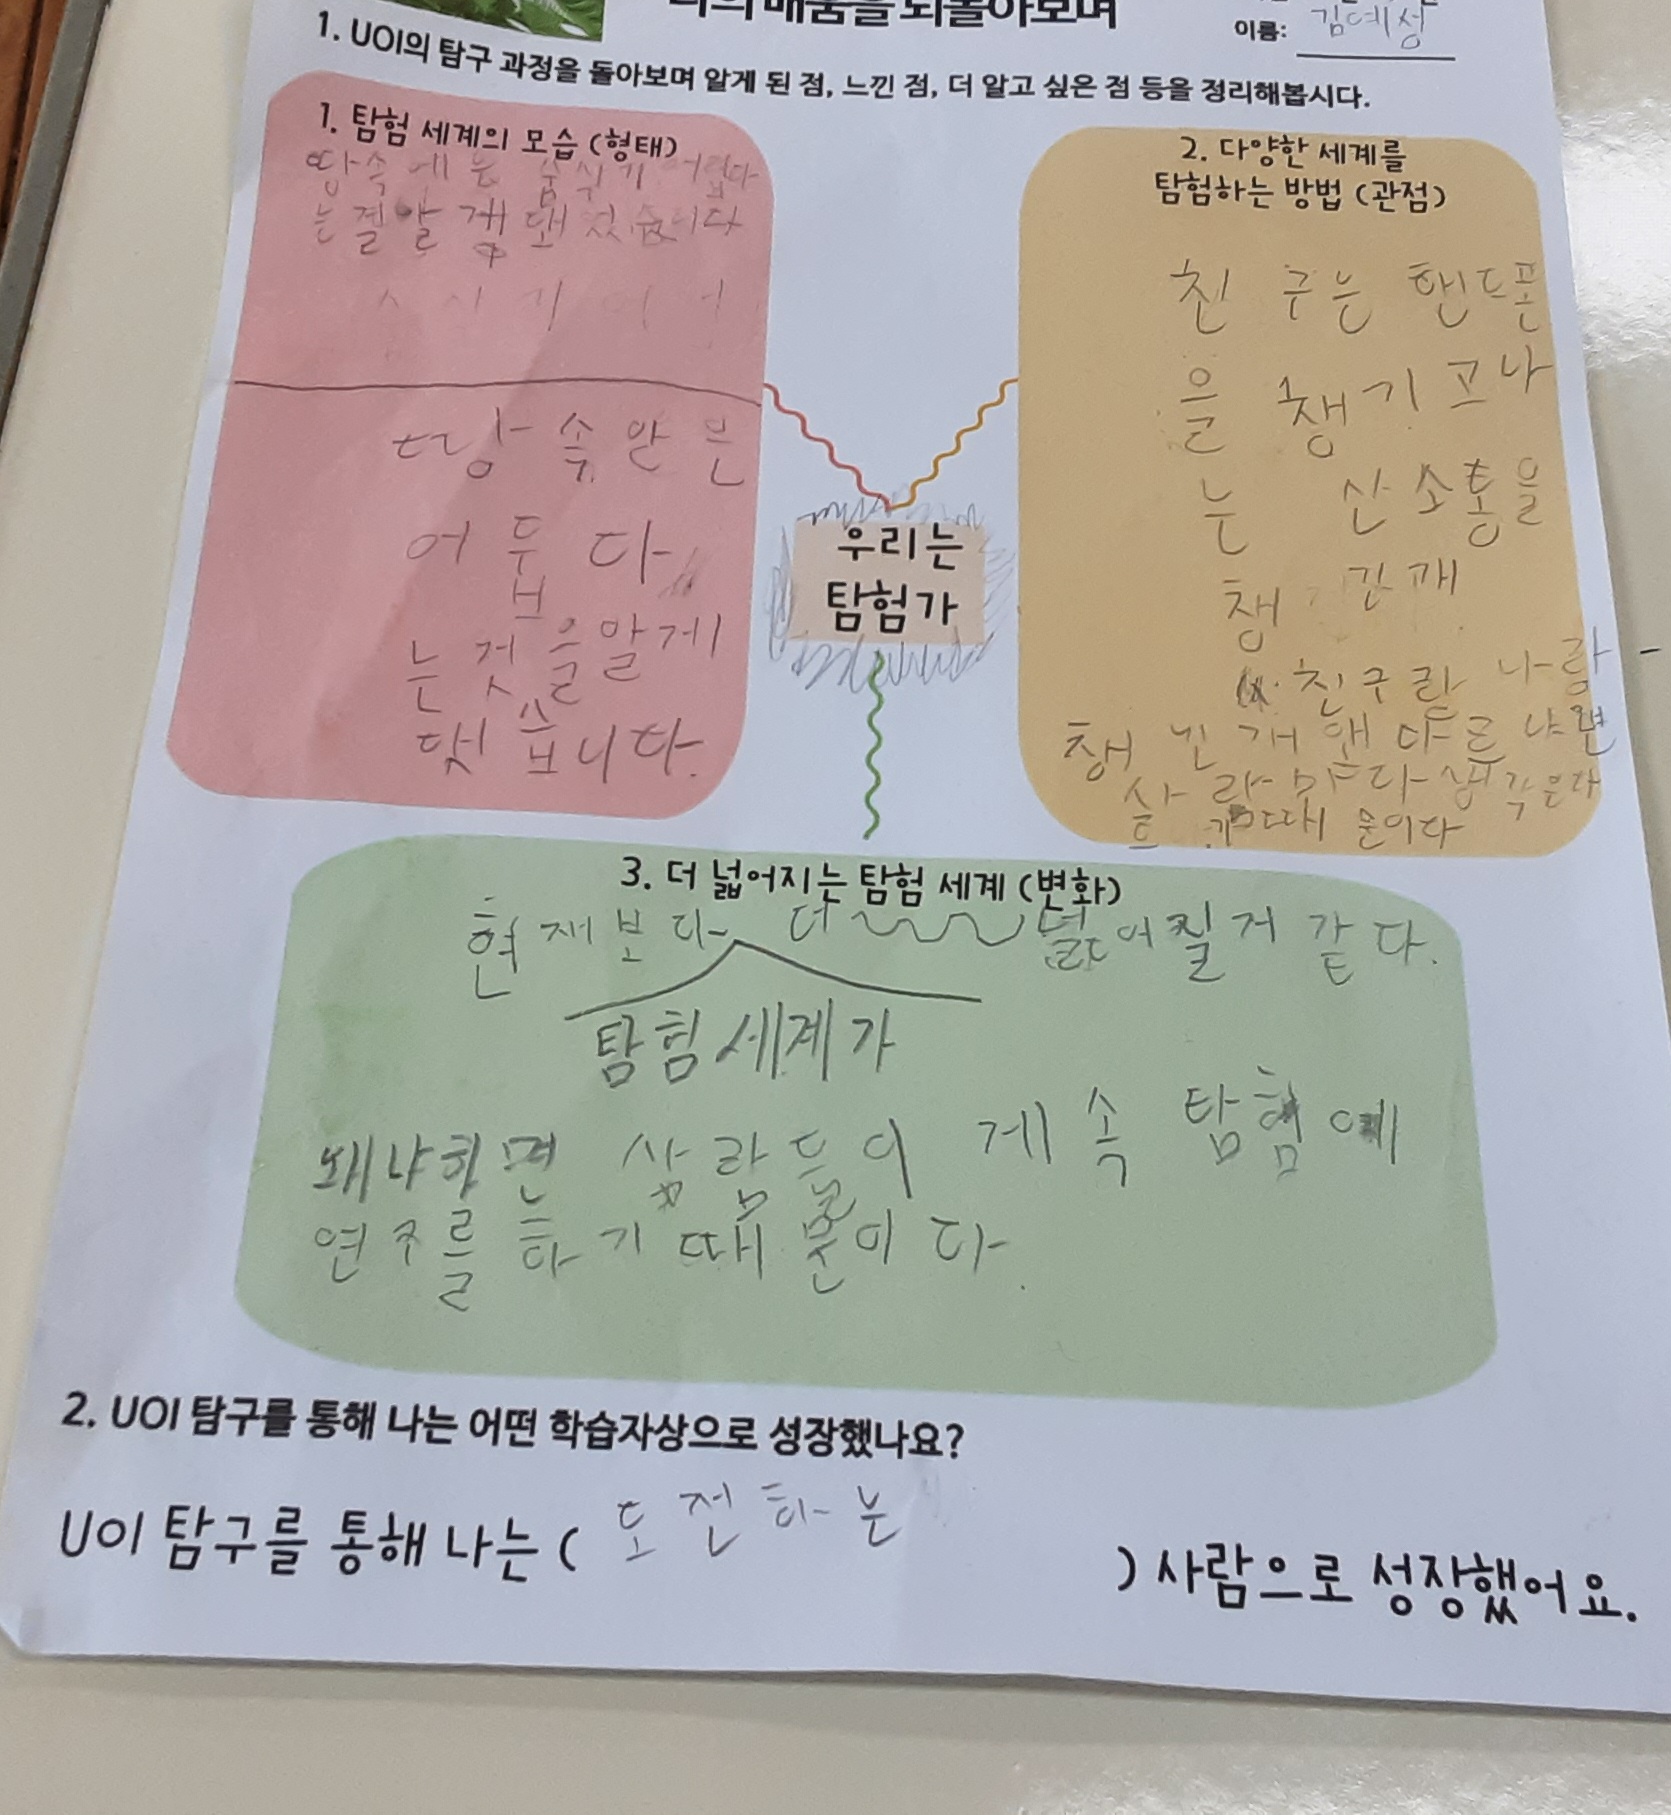 나의 배움을 되돌아보며
이름: 김예성
1. UOI의 탐구 과정을 돌아보며 알게 된 점, 느낀 점, 더 알고 싶은 점 등을 정리해봅시다.
1. 탐험 세계의 모습 (형태)
땅속에는 숨쉬기 어렵다
는 걸 알게 돼었습니다
땅속안은
어둡다
는것을알게
댓습니다.
2. 다양한 세계를
탐험하는 방법 (관점)
친구은 핸드폰
을 챙기고나
는 산소통을
챙긴개
친구랑 나랑
챙긴개 왜 다르냐면
사람마다 생각은다
르기때문이다
우리는
탐험가
3. 더 넓어지는 탐험 세계 (변화)
현재보다 더 넓어질거 같다.
탐험세계가
왜냐하면 사람들이 계속 탐험에
연구를 하기 때문이다.
2. UOI 탐구를 통해 나는 어떤 학습자상으로 성장했나요?
UOI 탐구를 통해 나는 ( 도전하는 ) 사람으로 성장했어요.